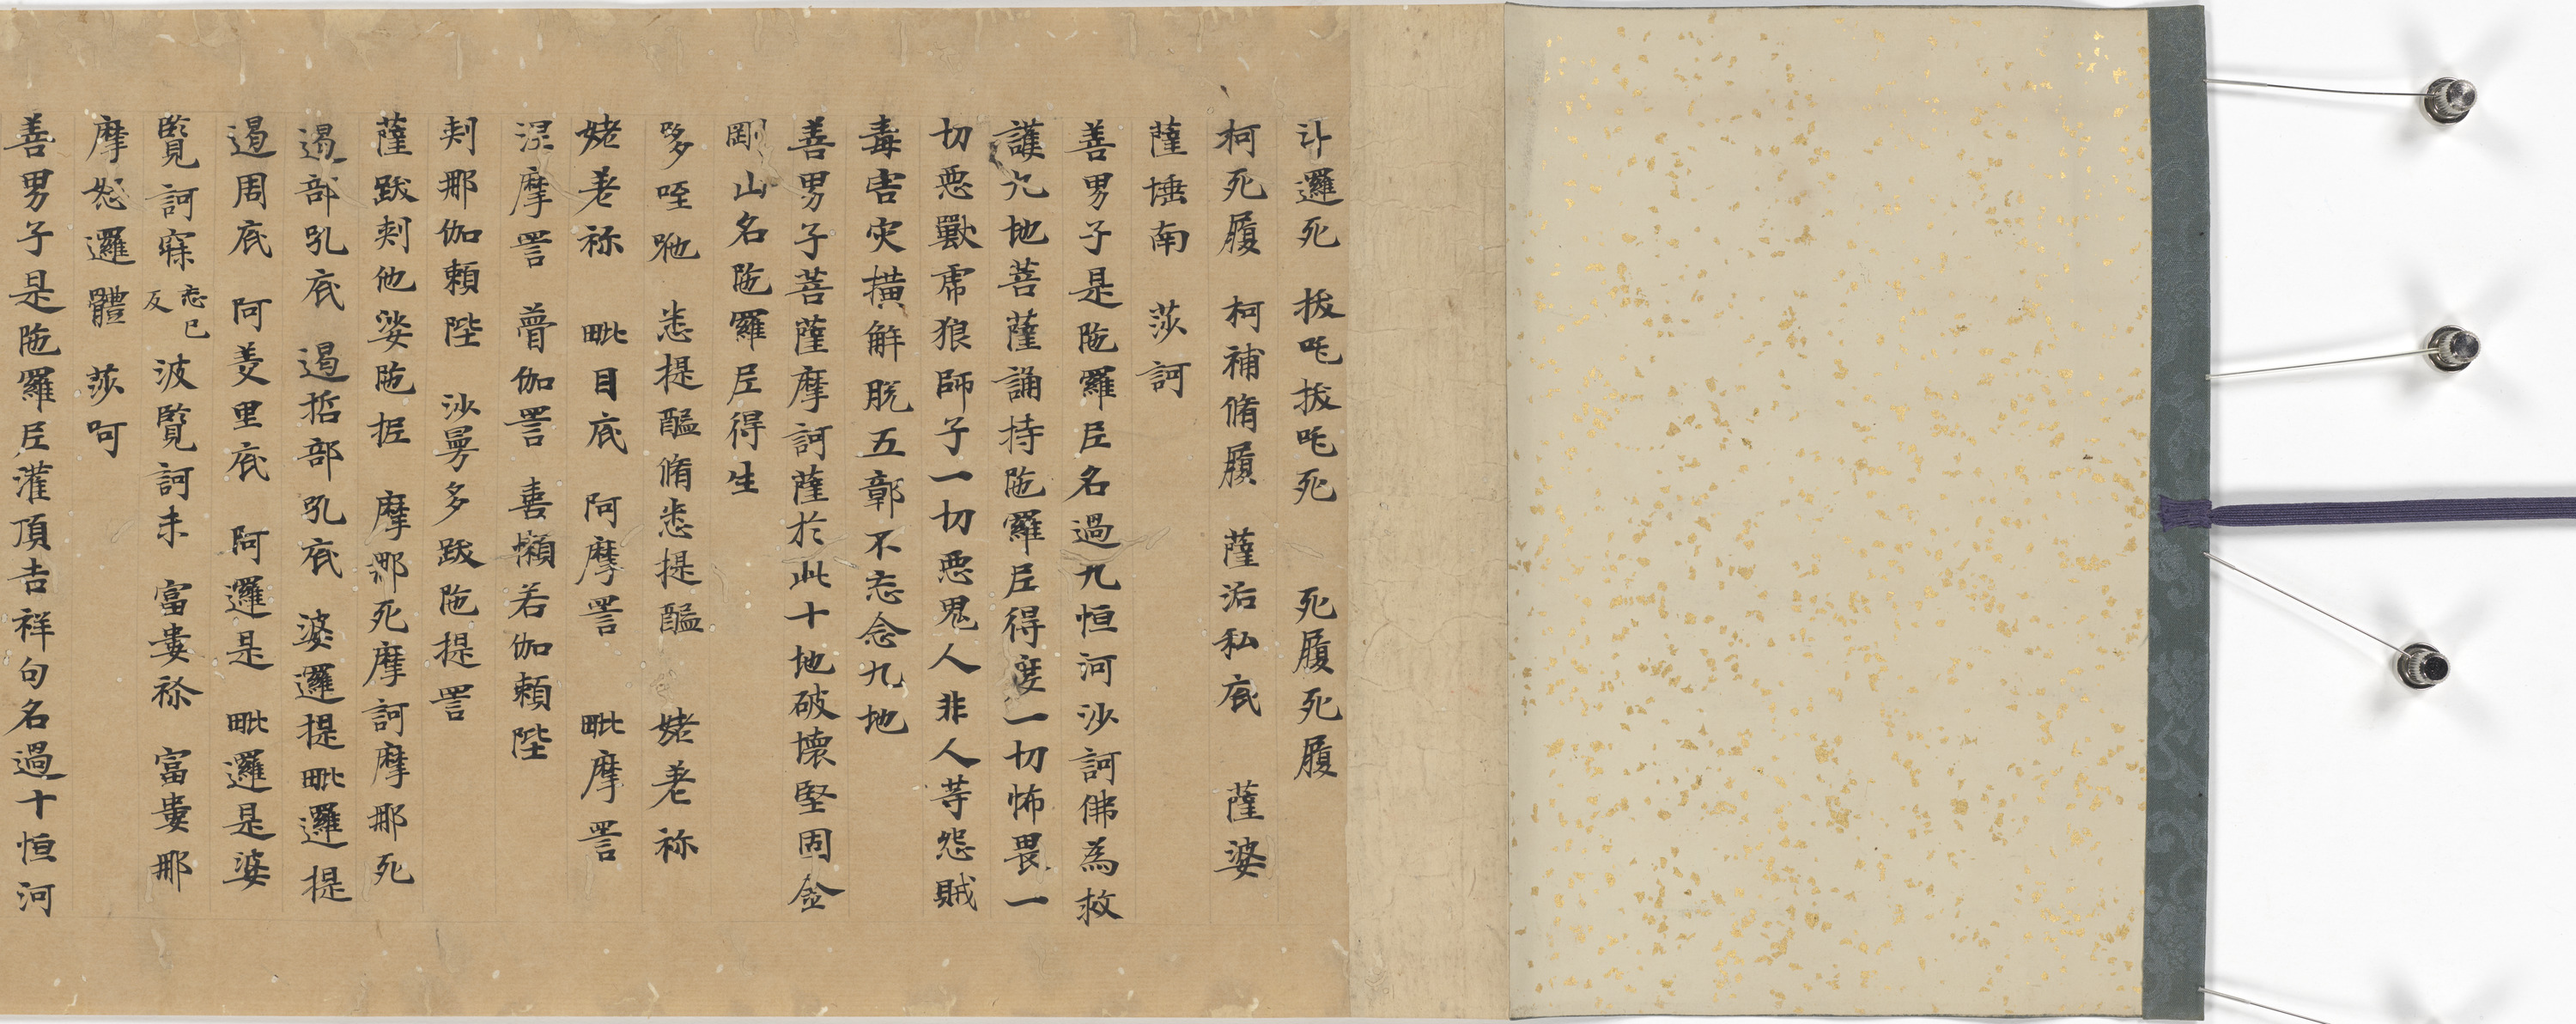 斗邏死 拔吒拔吒死 死履死履
柯死履 柯補脩履 薩㳓私底 薩婆
薩埵南 莎訶
善男子是陁羅尼名過九恒河沙訶佛為救
護九地菩薩誦持陁羅尼得度一切怖畏一
切惡獸虎狼師子一切惡鬼人非人等怨賊
毒害灾撗解脫五鄣不忘念九地
善男子菩薩摩訶薩於此十地破壞堅固金
剛山名陁羅尼得生
哆咥吔 悉提醯脩悉提醯 姥耂祢
姥耂祢 毗目底 阿摩詈 毗摩詈
涅摩詈 瞢伽詈 憙懶若伽頼陛
剌那伽頼陛 沙曼多跋陁提詈
薩跋剌他娑陁抳 摩那死摩訶摩那死
遏部吼底 遏哲部吼底 婆邏提毗邏提
遏周底 阿羑里底 阿邏是 毗邏是婆
覽訶寐忘已反波覽訶未 富婁祢 富婁那
摩怒邏體 莎呵
善男子是陁羅尼灌頂吉祥句名過十恒河